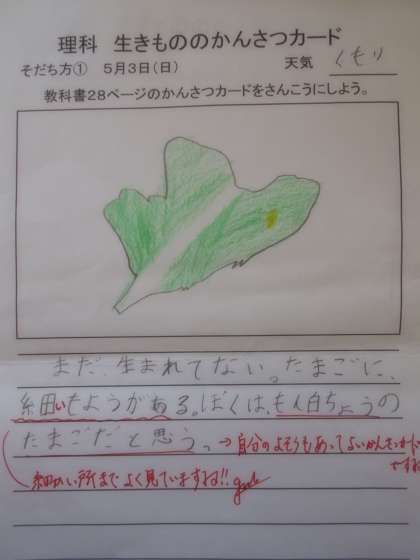 理科 生きもののかんさつカード
そだち方① 5月3日(日) 天気 くもり
教科書28ページのかんさつカードをさんこうにしよう。
まだ、生まれてない。たまごに、
細いもようがある。ぼくは、もん白ちょうの
たまごだと思う。→自分のよそうもあってよいかんさつカード
ですね
細かい所までよく見ていますね!!